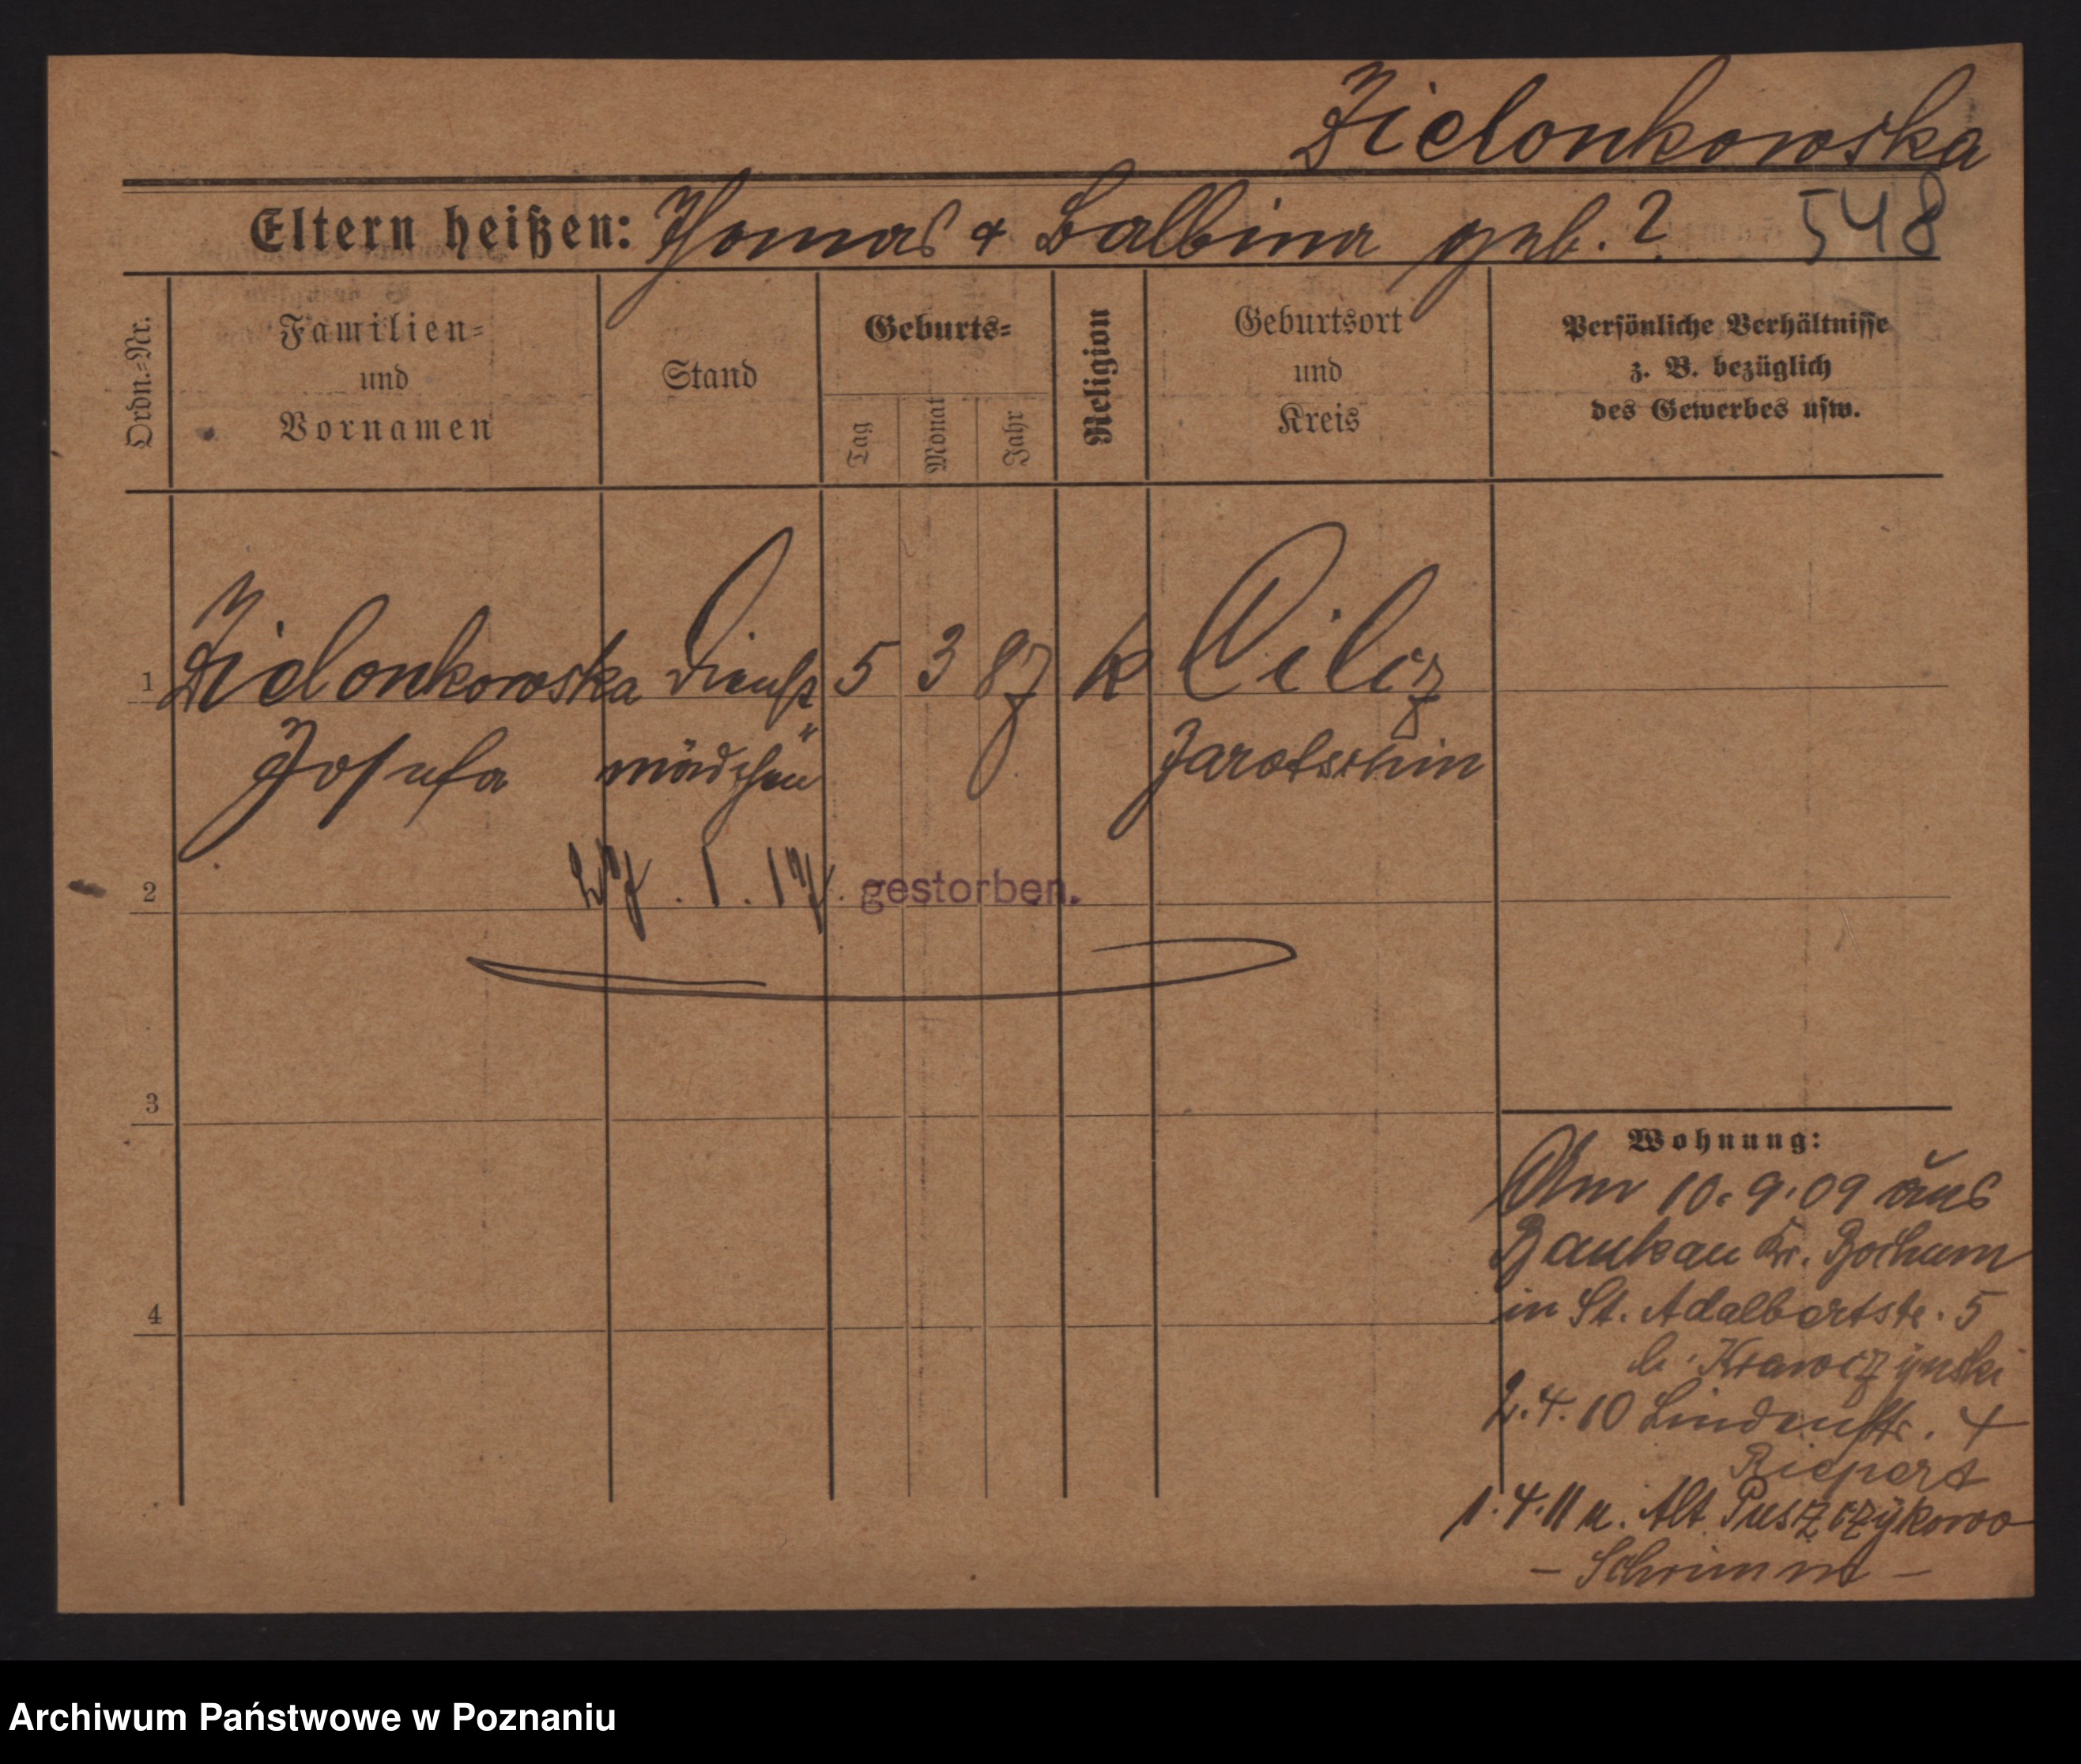 Zielonkowska
Eltern heißen: Thomas & Balbina geb. ? 548
Ordn.=Nr.
Familien=
und
Vornamen
Stand
Geburts=
Tag
Monat
Jahr
Religion
Geburtsort
und
Kreis
Persönliche Verhältnisse
z. B. bezüglich
des Gewerbes usw.
1 Zielonkowska Dienst 5 3 87 k Cilcz
Josefa mädchen Jarotschin
2 27. 1. 17. gestorben.
3
4
Wohnung:
Am 10. 9. 09 aus
Baukau Kr. Bochum
in St. Adalbertstr. 5
b. Krawczynski
2. 4. 10 Lindenstr. 4
Riepert
1. 4. 11 n. Alt Puszczykowo
– Schrimm –
Archiwum Państwowe w Poznaniu